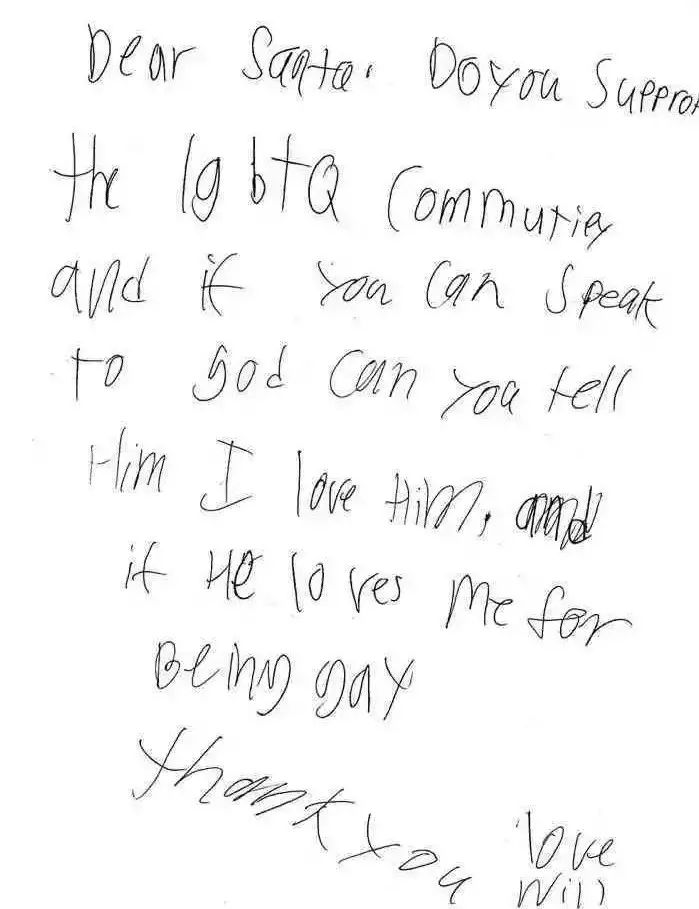 Dear Santa. Do you Suppro
the lgbtQ Commutiey
and if you can speak
to god can you tell
Him I love Him, and
if He loves me for
Being gay
thank you love
Will